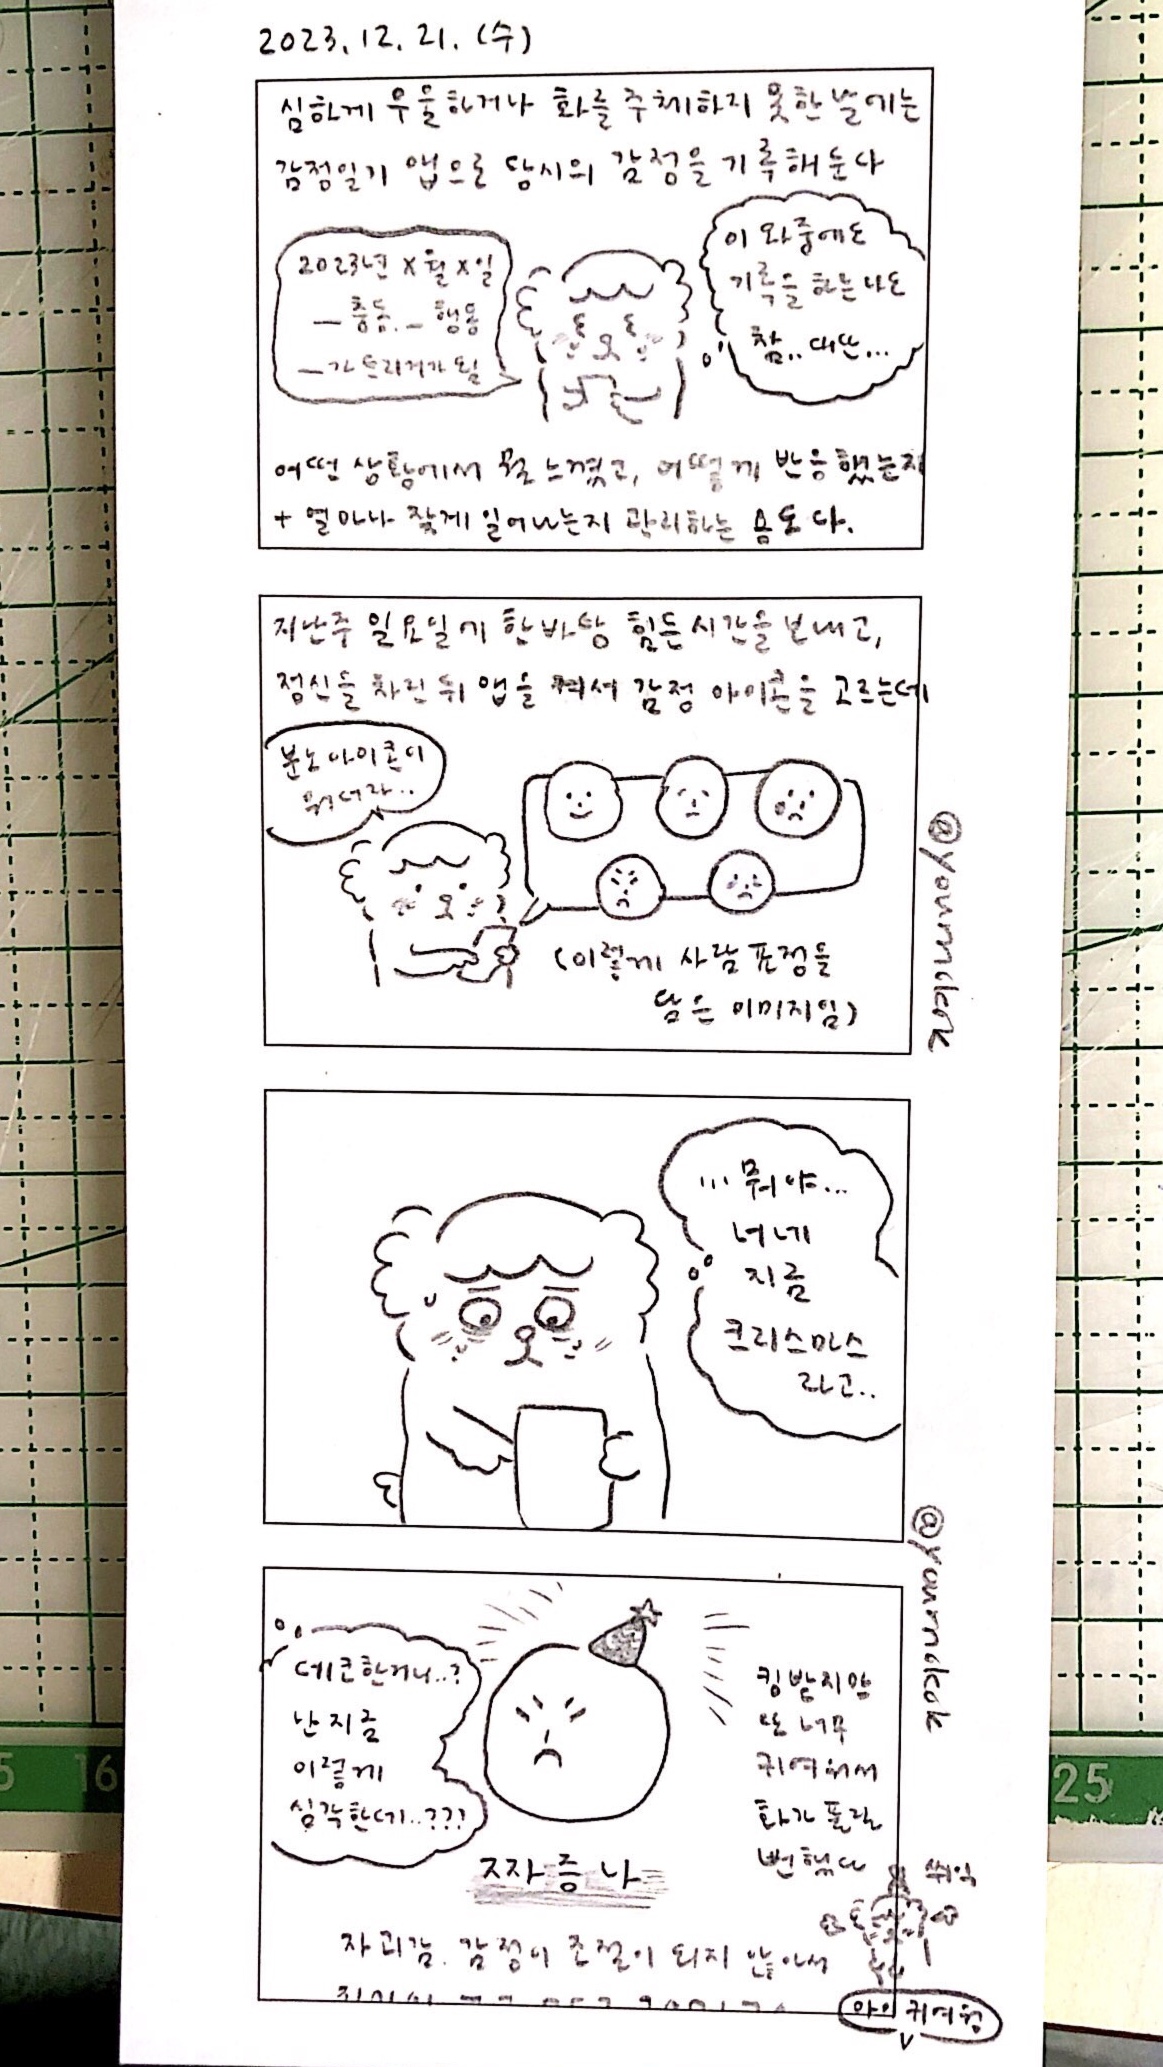 2023. 12. 21. (수)
심하게 우울하거나 화를 주체하지 못한 날에는
감정일기 앱으로 당시의 감정을 기록해둔다
2023년 X월 X일
— 충동. — 행동
이 와중에도
기록을 하는 나도
참.. 대단...
어떤 상황에서 뭘 느꼈고, 어떻게 반응했는지
+ 얼마나 잦게 일어나는지 관리하는 용도다.
지난주 일요일에 한바탕 힘든 시간을 보내고,
정신을 차린 뒤 앱을 켜서 감정 아이콘을 고르는데
분노 아이콘이
뭐더라..
(이렇게 사람 표정을
담은 이미지임)
@yourndkok
...뭐야...
너네
지금
크리스마스
라고..
@yourndkok
데코한거니..?
난 지금
이렇게
심각한데..???
킹받지만
또 너무
귀여워서
화가 풀릴
뻔했다
짜증나
쒸익
자괴감. 감정이 조절이 되지 않아서
아이 귀여웡
5 16 25